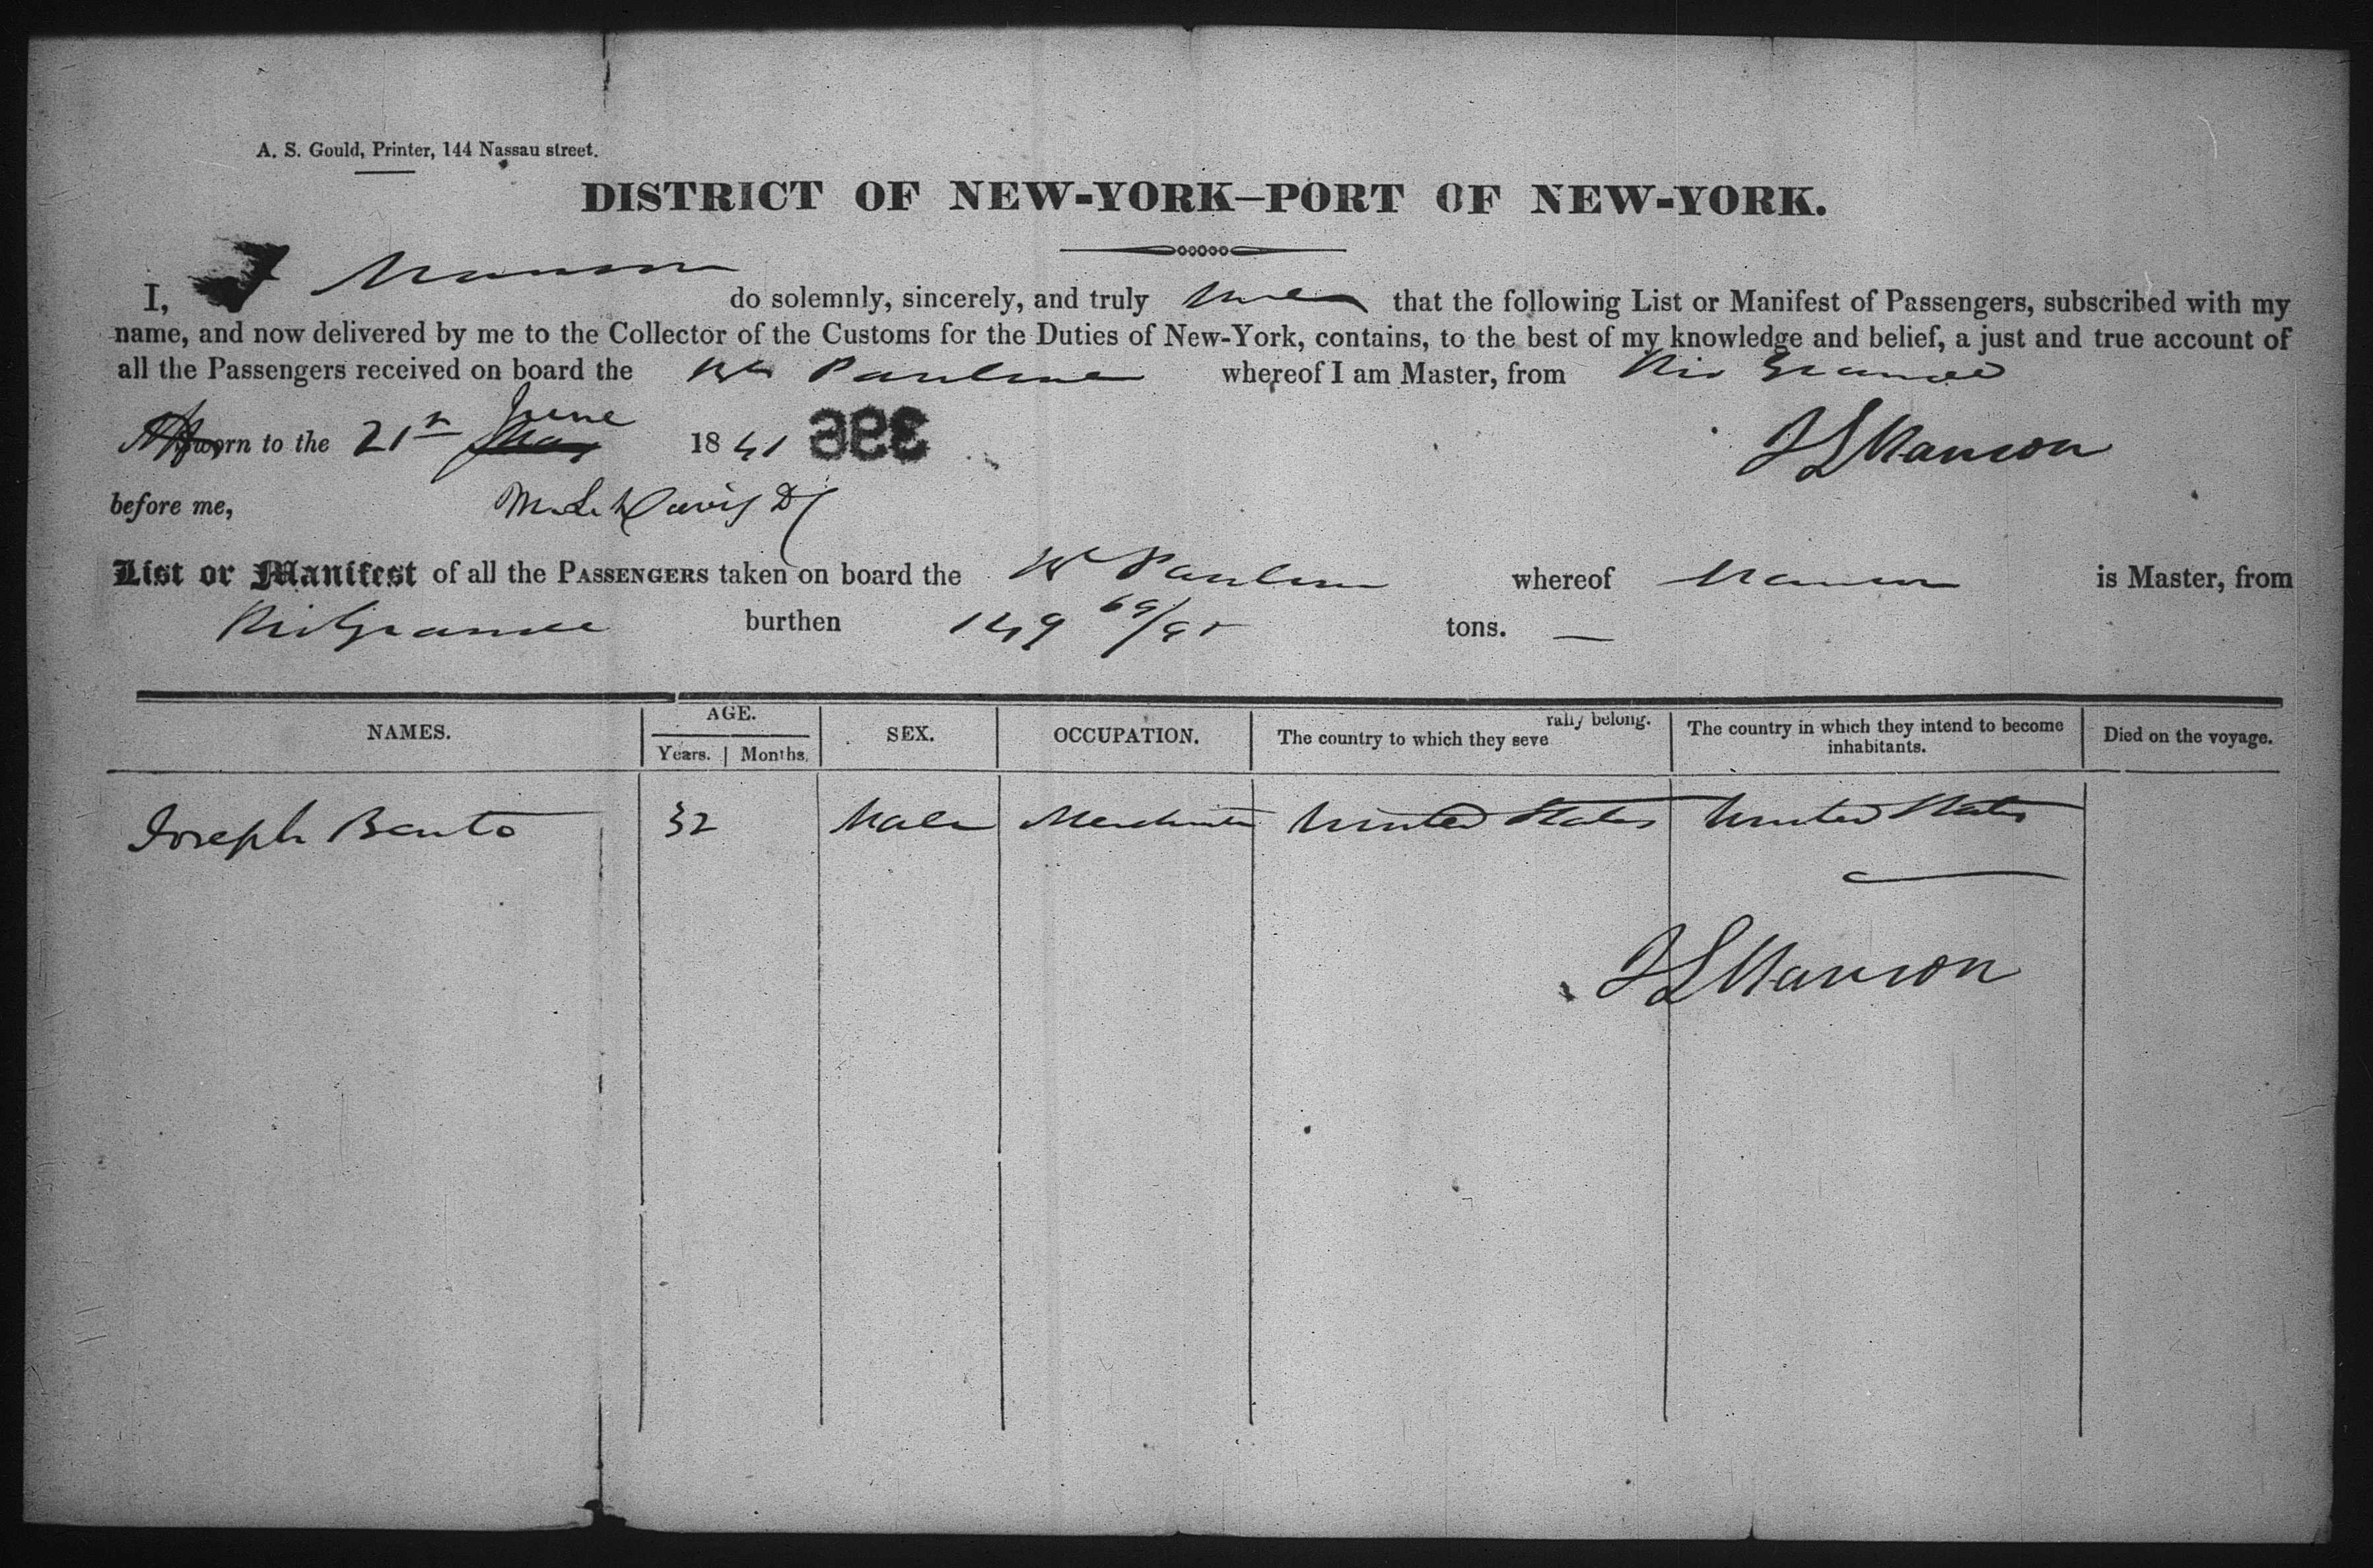 A. S. Gould, Printer, 144 Nassau street.
DISTRICT OF NEW-YORK—PORT OF NEW-YORK.
I, do solemnly, sincerely, and truly that the following List or Manifest of Passengers, subscribed with my
name, and now delivered by me to the Collector of the Customs for the Duties of New-York, contains, to the best of my knowledge and belief, a just and true account of
all the Passengers received on board the Pauline whereof I am Master, from Rio Grande
June
Sworn to the 21st May 1841
before me, M. L. Davis
List or Manifest of all the PASSENGERS taken on board the Pauline whereof is Master, from
Rio Grande burthen 149 69/95 tons. —
NAMES. AGE. SEX. OCCUPATION. The country to which they seve rally belong. The country in which they intend to become inhabitants. Died on the voyage.
Years. Months.
Joseph Bento 32 Male Merchant United States United States